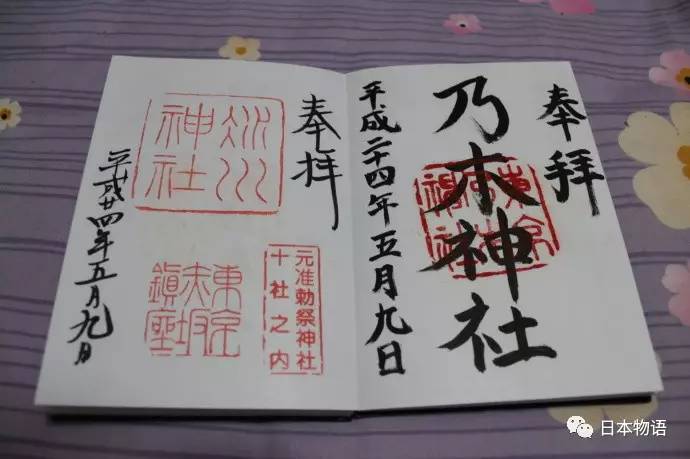 奉拝
乃木神社
平成二十四年五月九日
奉拝
氷川
神社
元准勅祭神社
十社之内
東京
赤坂
鎮座
平成廿四年五月九日
日本物语